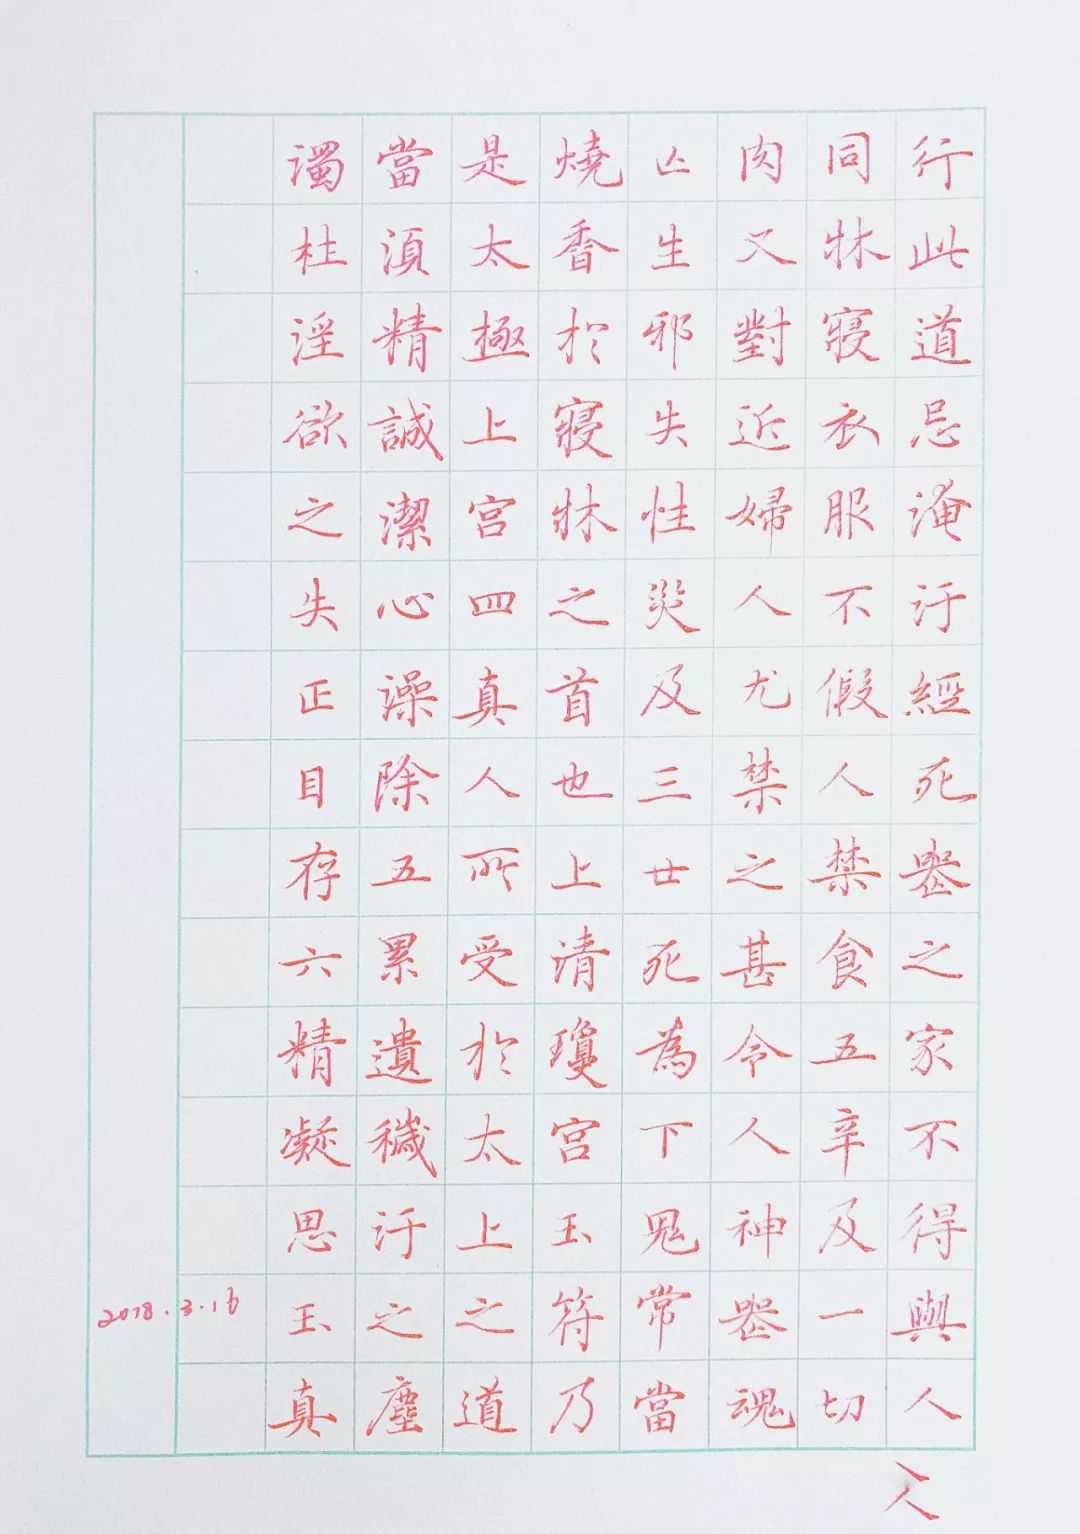 行此道忌淹汙經死喪之家不得與人
同牀寢衣服不假人禁食五辛及一切
肉又對近婦人尤禁之甚令人神喪魂
亾生邪失性災及三世死為下鬼常當
燒香於寢牀之首也上清瓊宮玉符乃
是太極上宮四真人所受於太上之道
當須精誠潔心澡除五累遺穢汙之塵
濁杜淫欲之失正目存六精凝思玉真
2018.3.16